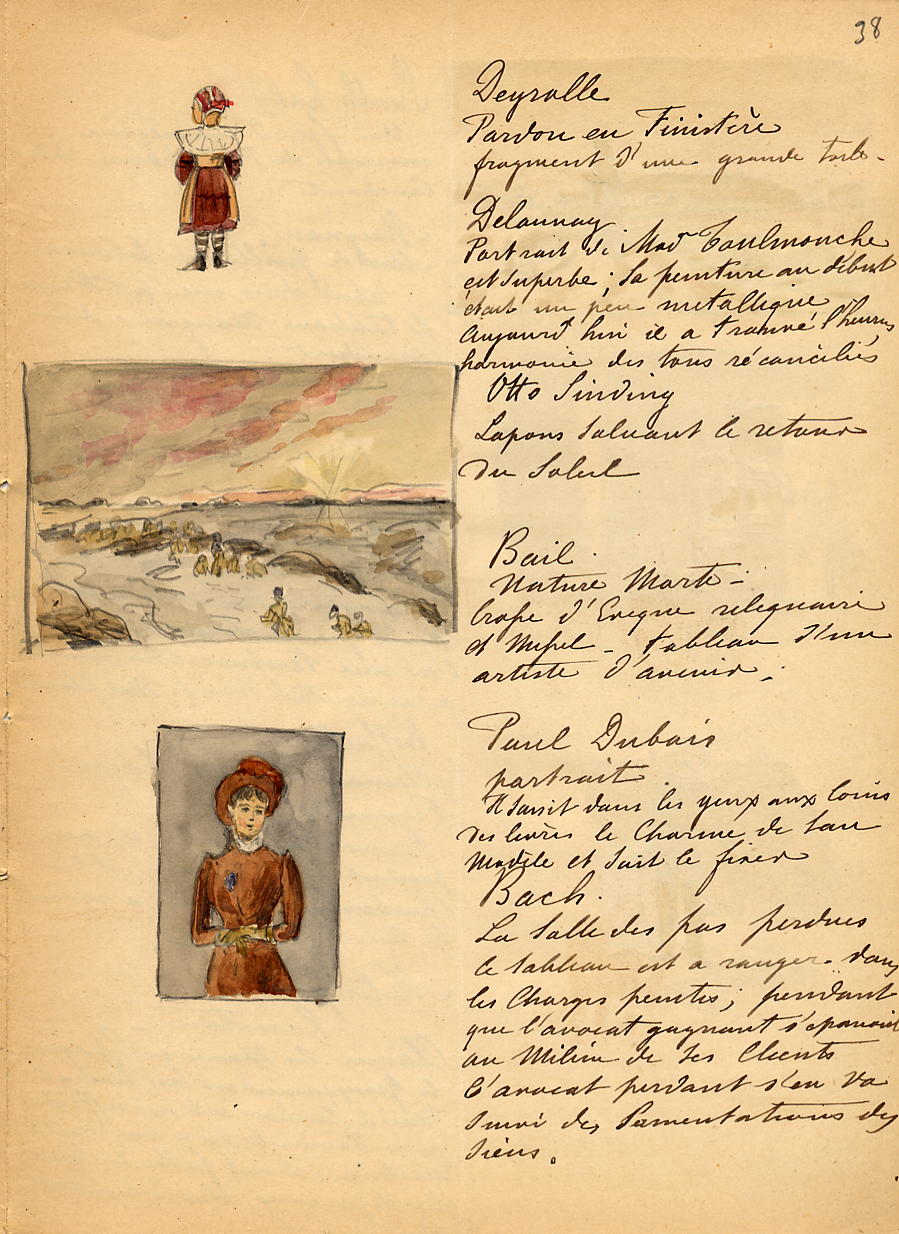 38
Deyrolle
Pardon en Finistère
fragment d'une grande toile -
Delaunay
Portrait de Mad Toulmouche
est superbe ; sa peinture au début
était un peu metallique
Aujourd'hui il a trouvé l'heureuse
harmonie des tons réconciliés
Otto Sinding
Lapons saluant le retour
du Soleil
Bail.
Nature Morte -
Crope d'Eveque reliquaire
et Missel - tableau d'un
artiste d'avenir.
Paul Dubois
portrait
Il saisit dans les yeux aux coins
des levres le Charme de son
Modèle et sait le fixer
Bach.
La Salle des pas perdues
Ce tableau est a ranger dans
les Charges peintes ; pendant
que l'avocat gagnant s'epanouit
au Milieu de ses Clients
L'avocat perdant s'en va
suivi des lamentations des
siens.